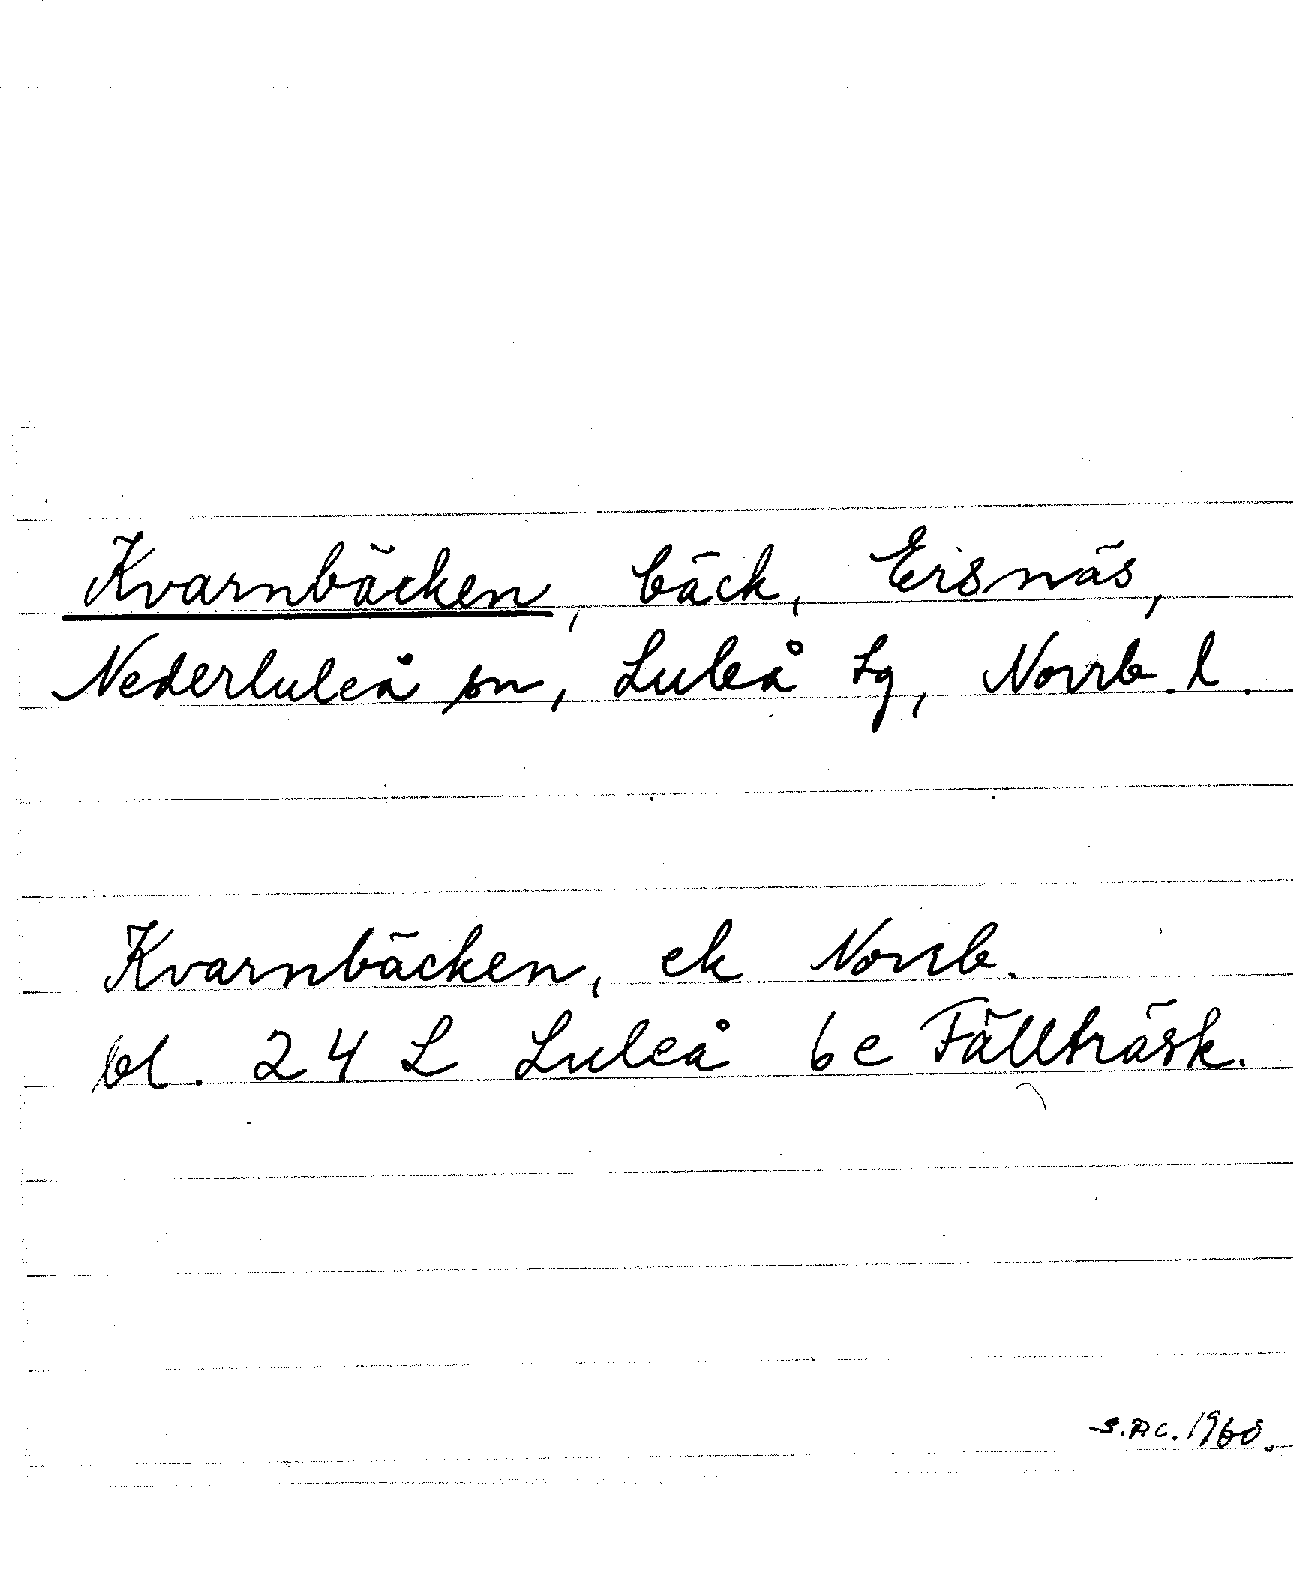 Kvarnbäcken, bäck, Ersnäs,
Nederluleå sn, Luleå tg, Norrb. l.
Kvarnbäcken, ek Norrb.
bl. 24 L Luleå 6e Fällträsk.
S.Ac. 1960.